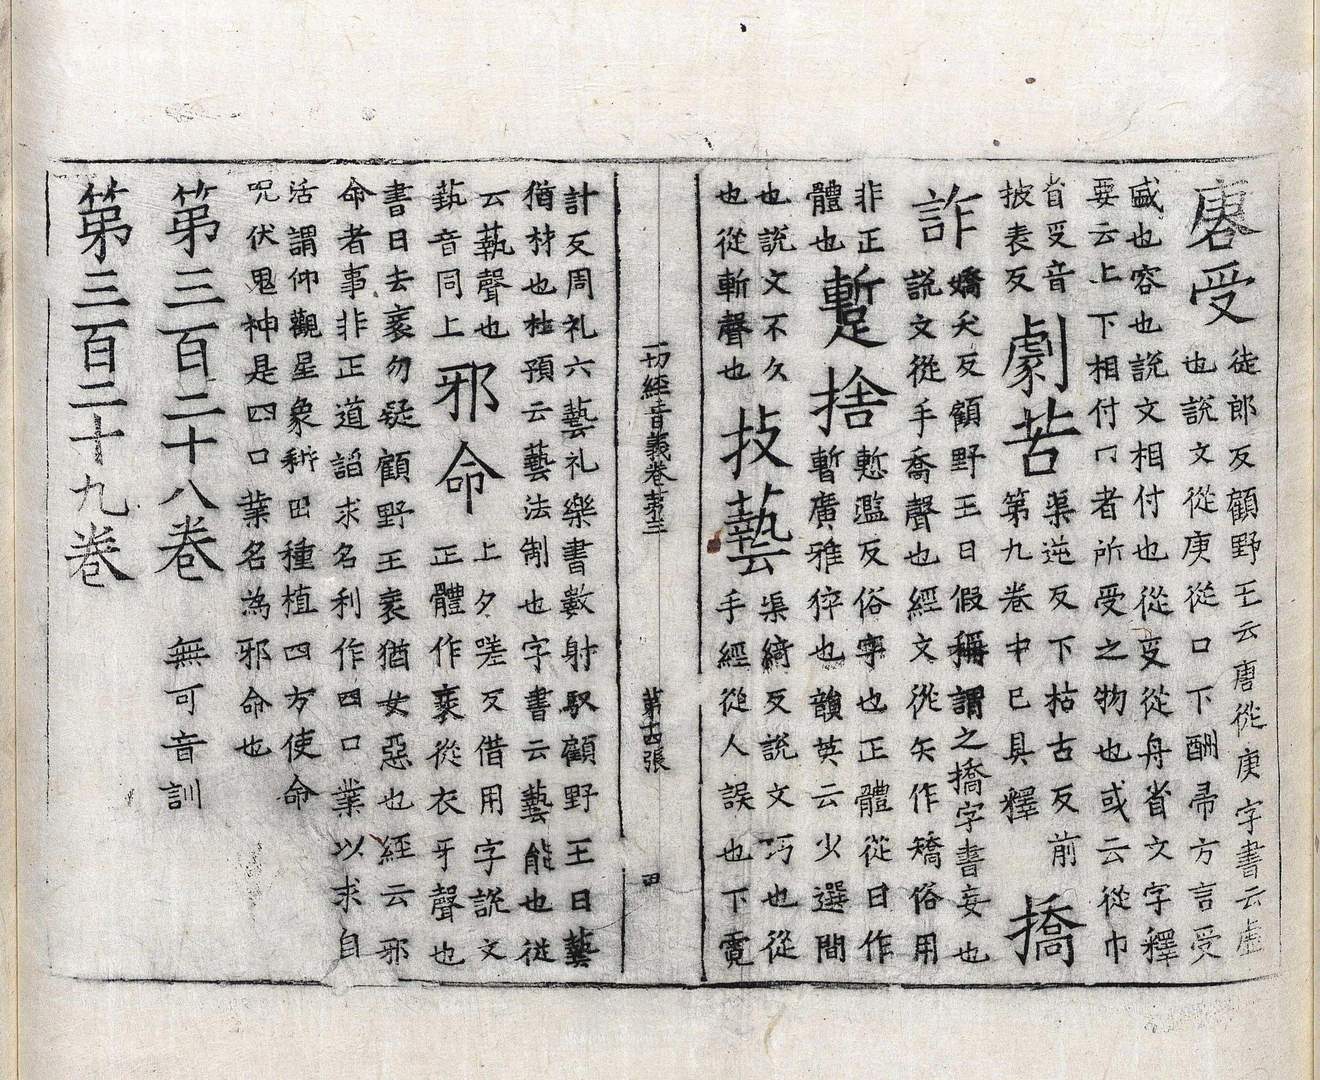 唐受 徒郎反顧野王云唐從庚字書云虛
也說文從庚從口下酬帚方言受
盛也容也說文相付也從𠬪從舟省文字釋
要云上下相付冂者所受之物也或云從巾
省受音
披表反
劇苦 渠逆反下枯古反前
第九卷中已具釋
撟
詐 嬌夭反顧野王曰假稱謂之撟字書妄也
說文從手喬聲也經文從矢作矯俗用
非正
體也
蹔捨 慙濫反俗字也正體從日作
暫廣雅猝也韻英云少選間
也說文不久
也從斬聲也
技藝 渠綺反說文巧也從
手經從人誤也下霓
一切經音義卷第三 第十四張 田
計反周礼六藝礼樂書數射馭顧野王曰藝
猶材也杜預云藝法制也字書云藝能也從
云埶聲也
藝音同上
邪命 上夕嗟反借用字說文
正體作衺從衣牙聲也
書曰去衺勿疑顧野王衺猶女惡也經云邪
命者事非正道諂求名利作四口業以求自
活謂仰觀星象耕田種植四方使命
呪伏鬼神是四口業名為邪命也
第三百二十八卷 無可音訓
第三百二十九卷